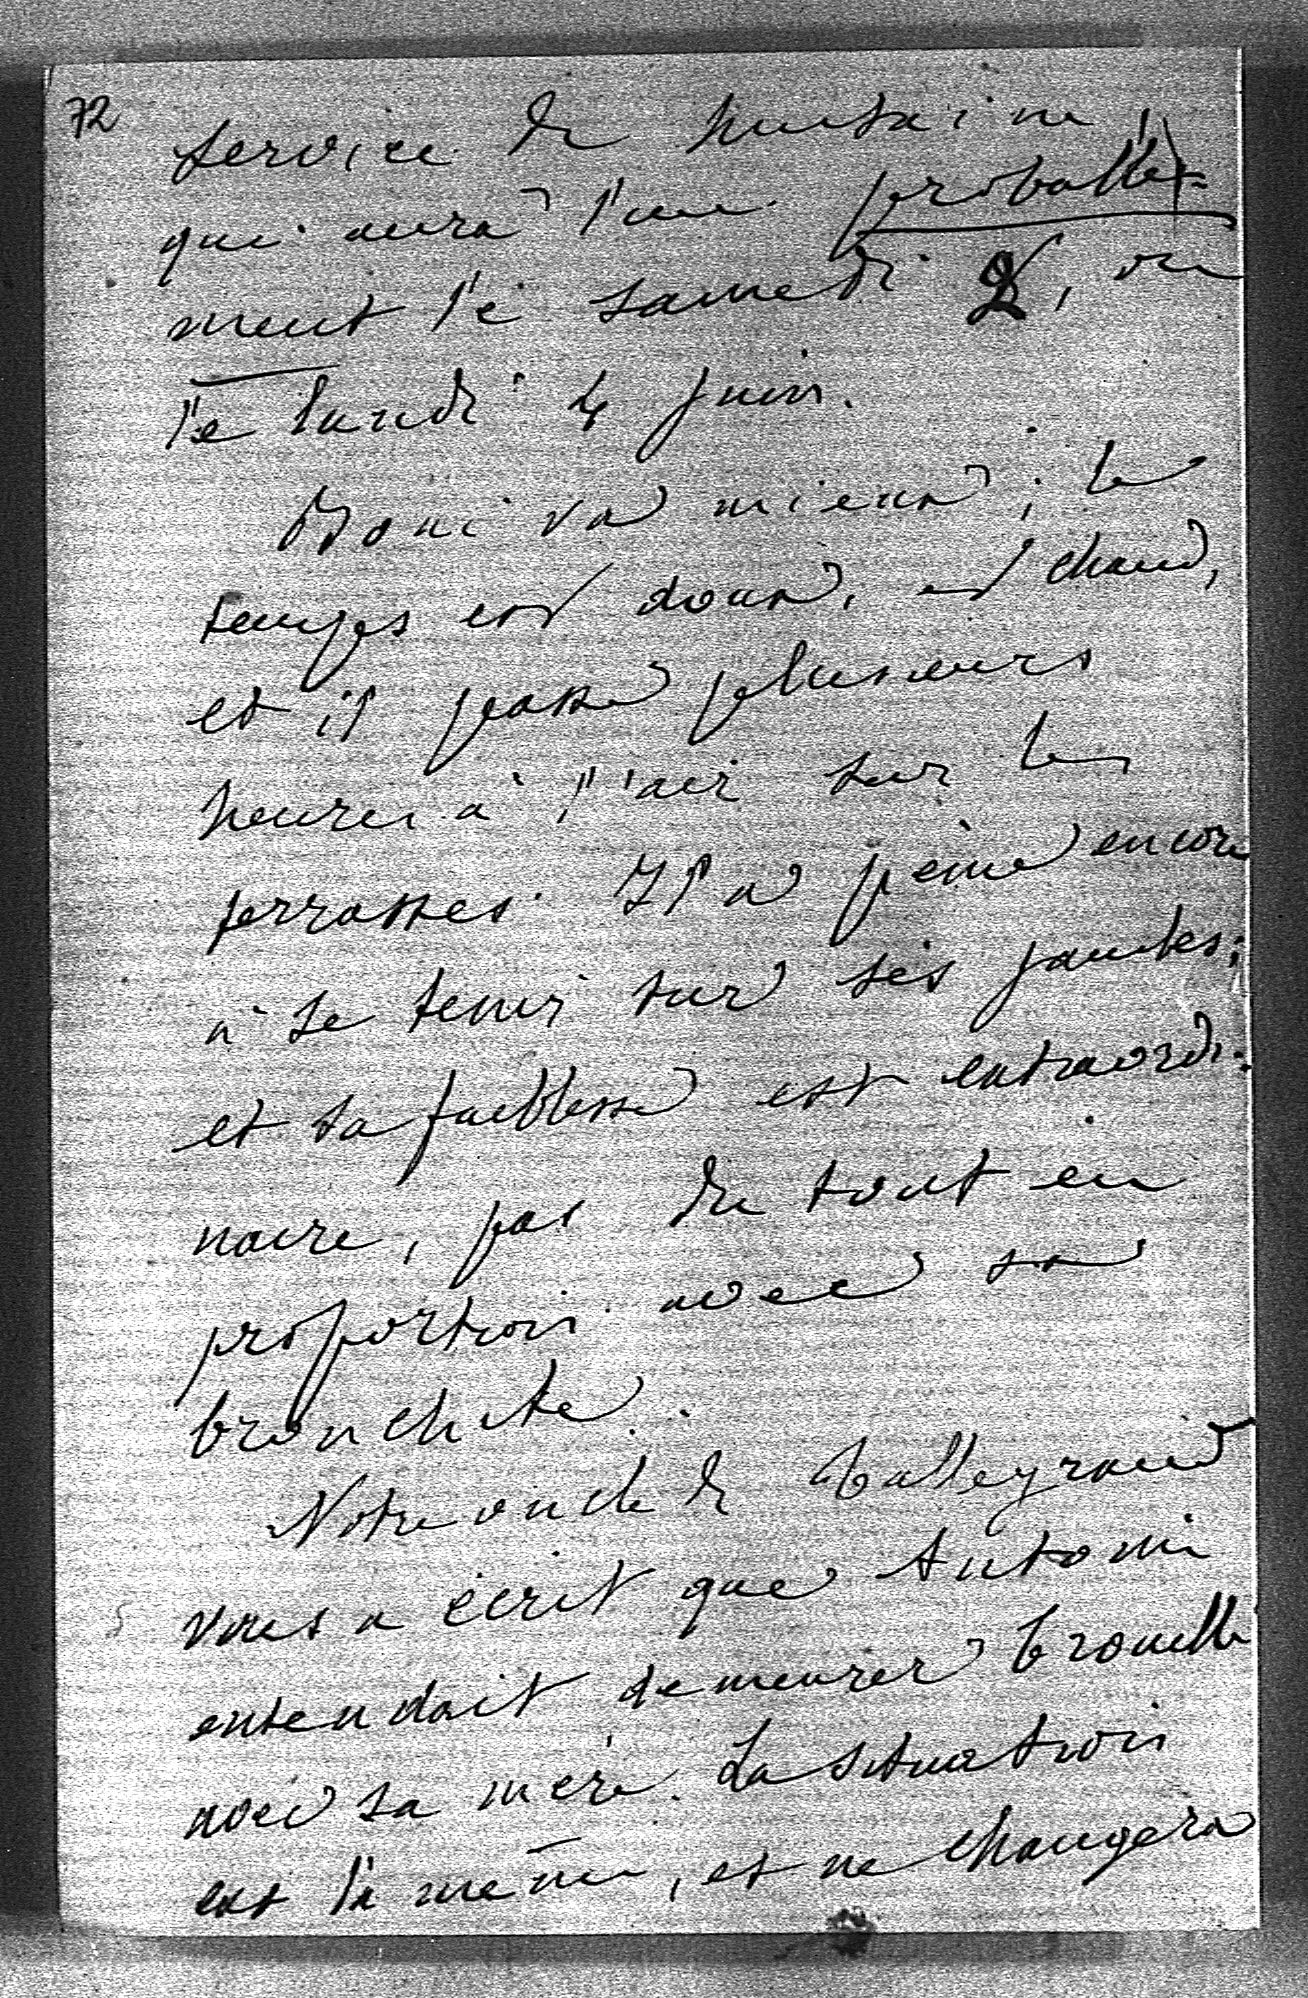 72
service de huitaine,
qui aura lieu probable-
ment le samedi 2, ou
le lundi 4 juin.
Boni va mieux ; le
temps est doux, et chaud,
et il passe plusieurs
heures à l'air sur les
terrasses. Il a peine encore
à se tenir sur ses jambes ;
et sa faiblesse est extraordi-
naire, pas du tout en
proportion avec sa
bronchite.
Notre oncle de Talleyrand
vous a écrit que Antonin
entendait demeurer brouillé
avec sa mère. La situation
est la même, et ne changera